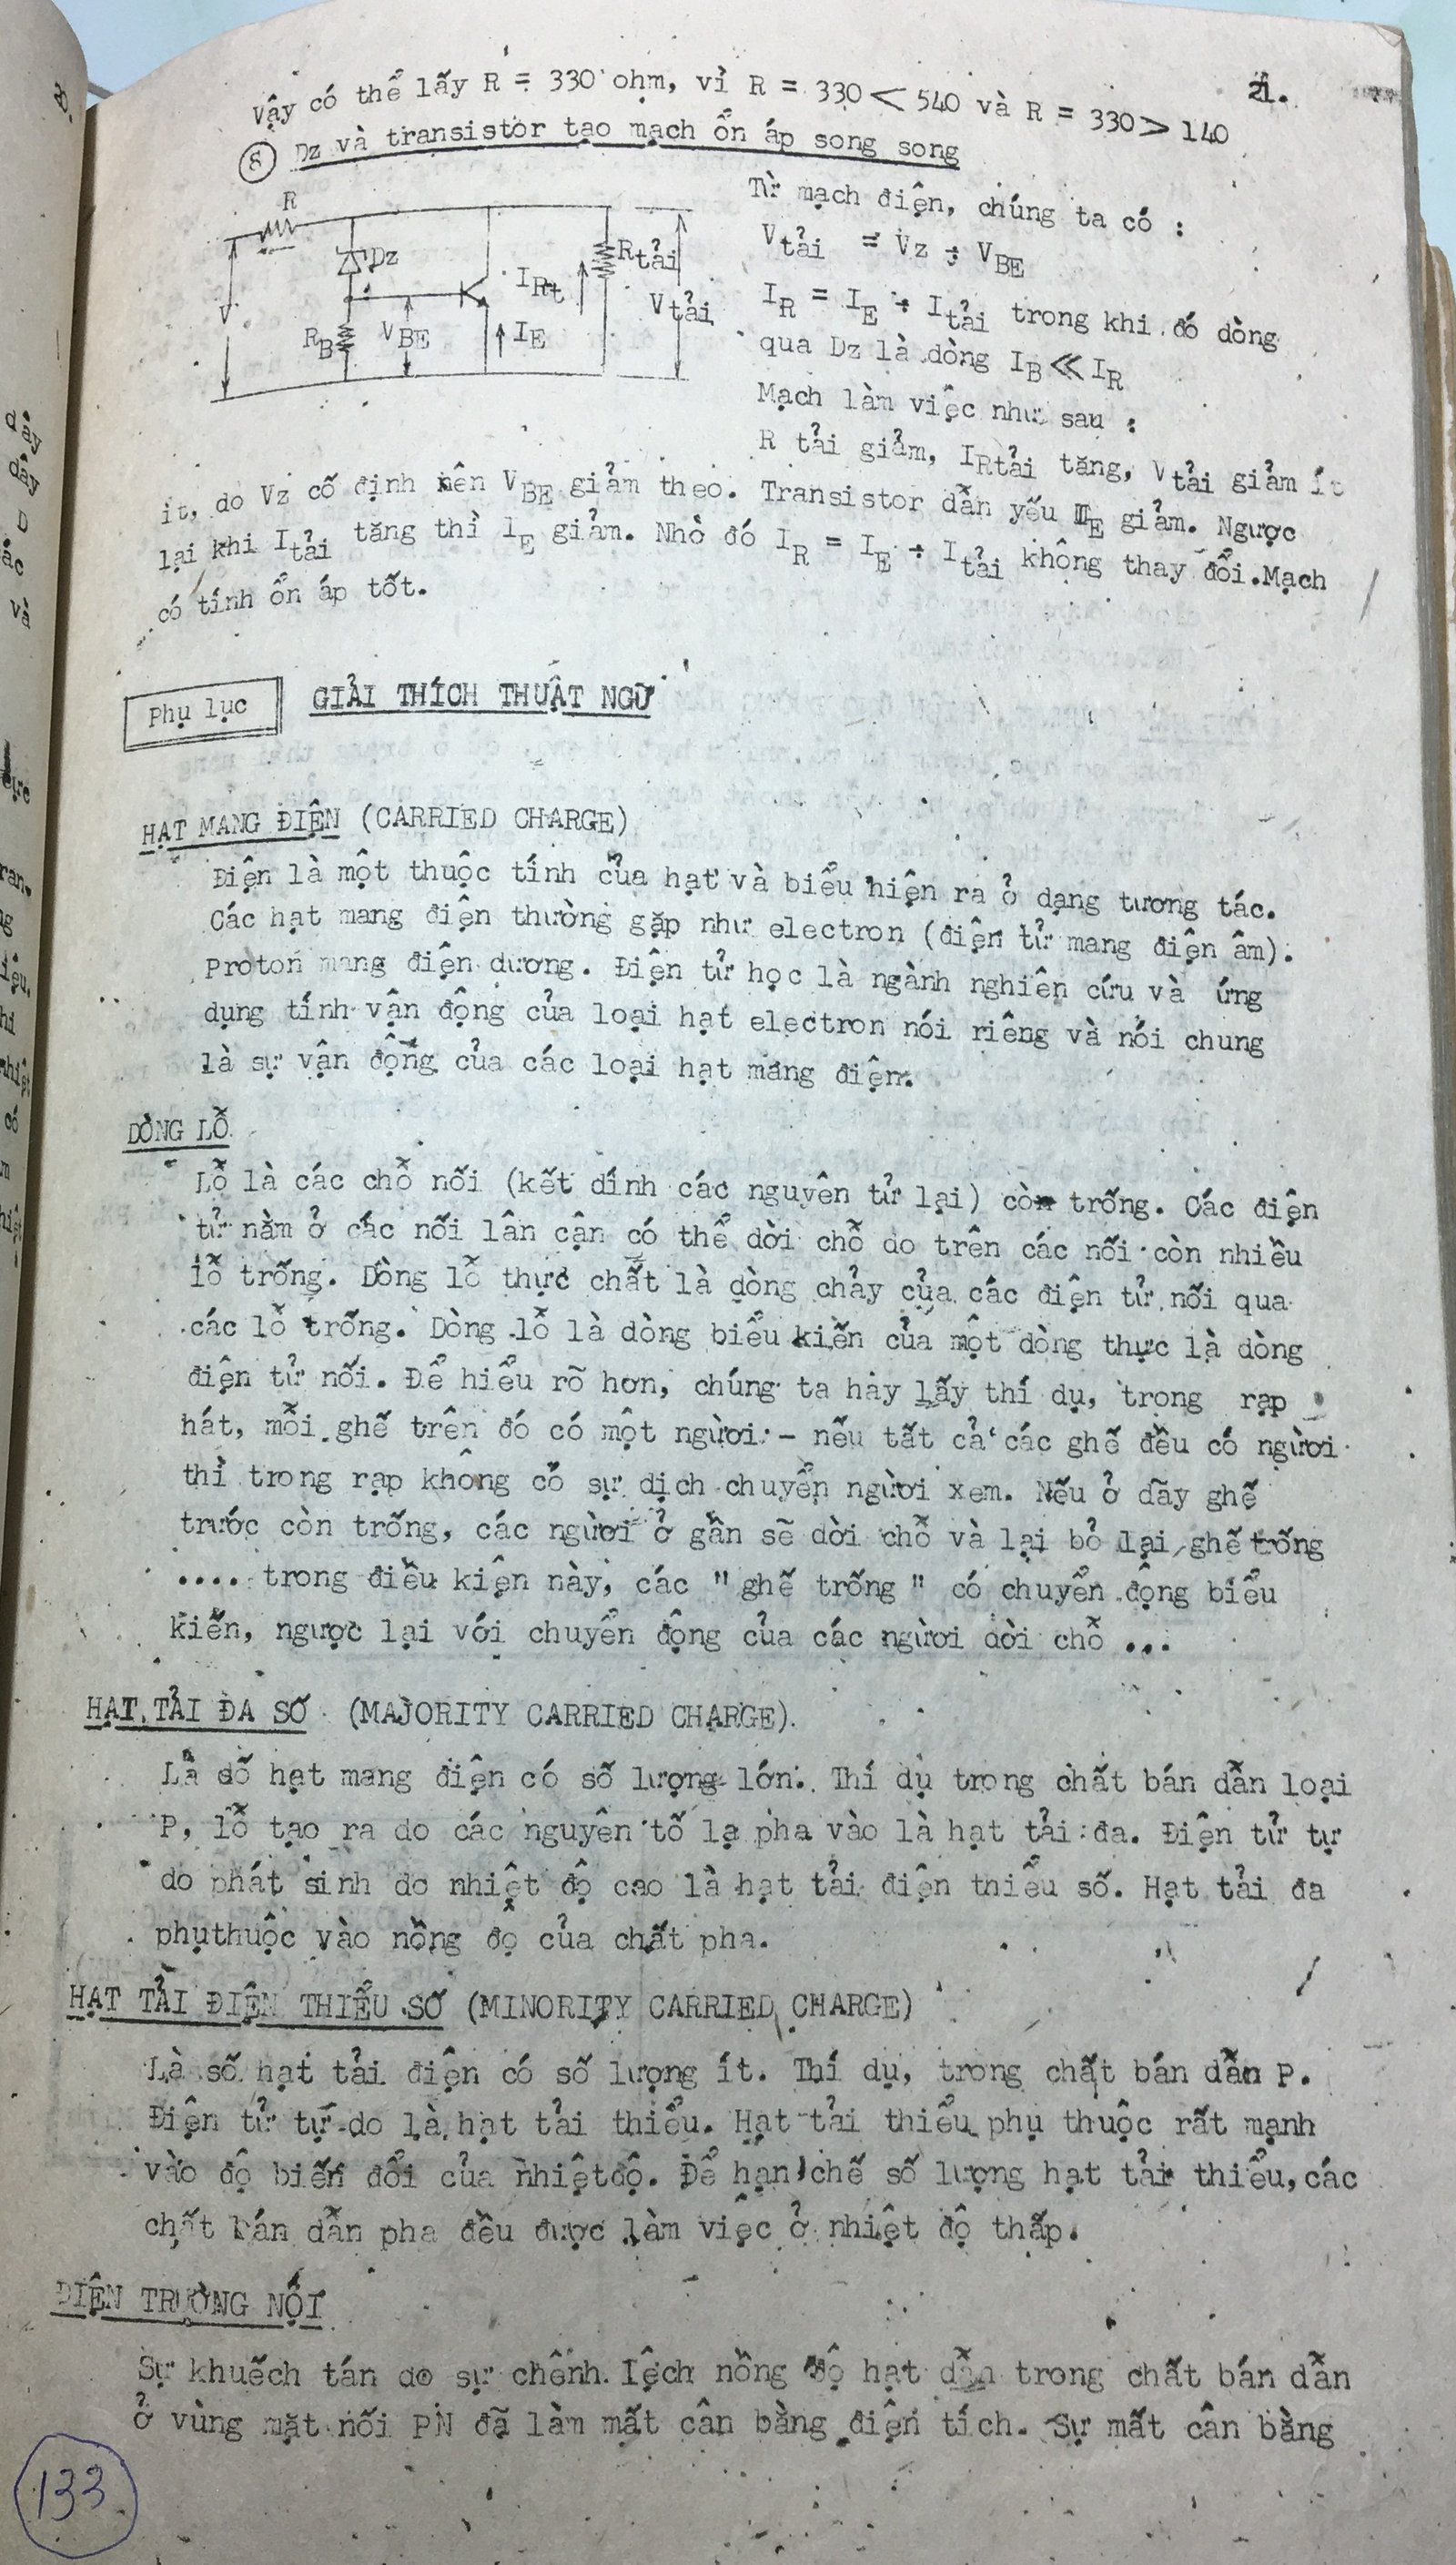 21.
Vậy có thể lấy R = 330 ohm, vì R = 330 < 540 và R = 330 > 140
8 Dz và transistor tạo mạch ổn áp song song
R
Dz
RB
VBE
IE
IRt
Rtải
Vtải
V
Từ mạch điện, chúng ta có :
Vtải = Vz + VBE
IR = IE + Itải trong khi đó dòng
qua Dz là dòng IB ≪ IR
Mạch làm việc như sau :
R tải giảm, IRtải tăng, Vtải giảm ít
ít, do Vz cố định nên VBE giảm theo. Transistor dẫn yếu IE giảm. Ngược
lại khi Itải tăng thì IE giảm. Nhờ đó IR = IE + Itải không thay đổi.Mạch
có tính ổn áp tốt.
Phụ lục GIẢI THÍCH THUẬT NGỮ
HẠT MANG ĐIỆN (CARRIED CHARGE)
Điện là một thuộc tính của hạt và biểu hiện ra ở dạng tương tác.
Các hạt mang điện thường gặp như electron (điện tử mang điện âm).
Proton mang điện dương. Điện tử học là ngành nghiên cứu và ứng
dụng tính vận động của loại hạt electron nói riêng và nói chung
là sự vận động của các loại hạt mang điện.
DÒNG LỖ
Lỗ là các chỗ nối (kết dính các nguyên tử lại) còn trống. Các điện
tử nằm ở các nối lân cận có thể dời chỗ do trên các nối còn nhiều
lỗ trống. Dòng lỗ thực chất là dòng chảy của các điện tử nối qua
các lỗ trống. Dòng lỗ là dòng biểu kiến của một dòng thực là dòng
điện tử nối. Để hiểu rõ hơn, chúng ta hảy lấy thí dụ, trong rạp
hát, mỗi ghế trên đó có một người - nếu tất cả các ghế đều có người
thì trong rạp không có sự dịch chuyển người xem. Nếu ở dãy ghế
trước còn trống, các người ở gần sẽ dời chỗ và lại bỏ lại ghế trống
.... trong điều kiện này, các " ghế trống " có chuyển động biểu
kiến, ngược lại với chuyển động của các người dời chỗ ...
HẠT TẢI ĐA SỐ (MAJORITY CARRIED CHARGE).
Là số hạt mang điện có số lượng lớn. Thí dụ trong chất bán dẫn loại
P, lỗ tạo ra do các nguyên tố lạ pha vào là hạt tải đa. Điện tử tự
do phát sinh do nhiệt độ cao là hạt tải điện thiểu số. Hạt tải đa
phụthuộc vào nồng độ của chất pha.
HẠT TẢI ĐIỆN THIỂU SỐ (MINORITY CARRIED CHARGE)
Là số hạt tải điện có số lượng ít. Thí dụ, trong chất bán dẫn P.
Điện tử tự do là hạt tải thiểu. Hạt tải thiểu phụ thuộc rất mạnh
vào độ biến đổi của nhiệtđộ. Để hạn chế số lượng hạt tải thiểu, các
chất bán dẫn pha đều được làm việc ở nhiệt độ thấp.
ĐIỆN TRƯỜNG NỐI
Sự khuếch tán do sự chênh lệch nồng độ hạt dẫn trong chất bán dẫn
ở vùng mặt nối PN đã làm mất cân bằng điện tích. Sự mất cân bằng
133